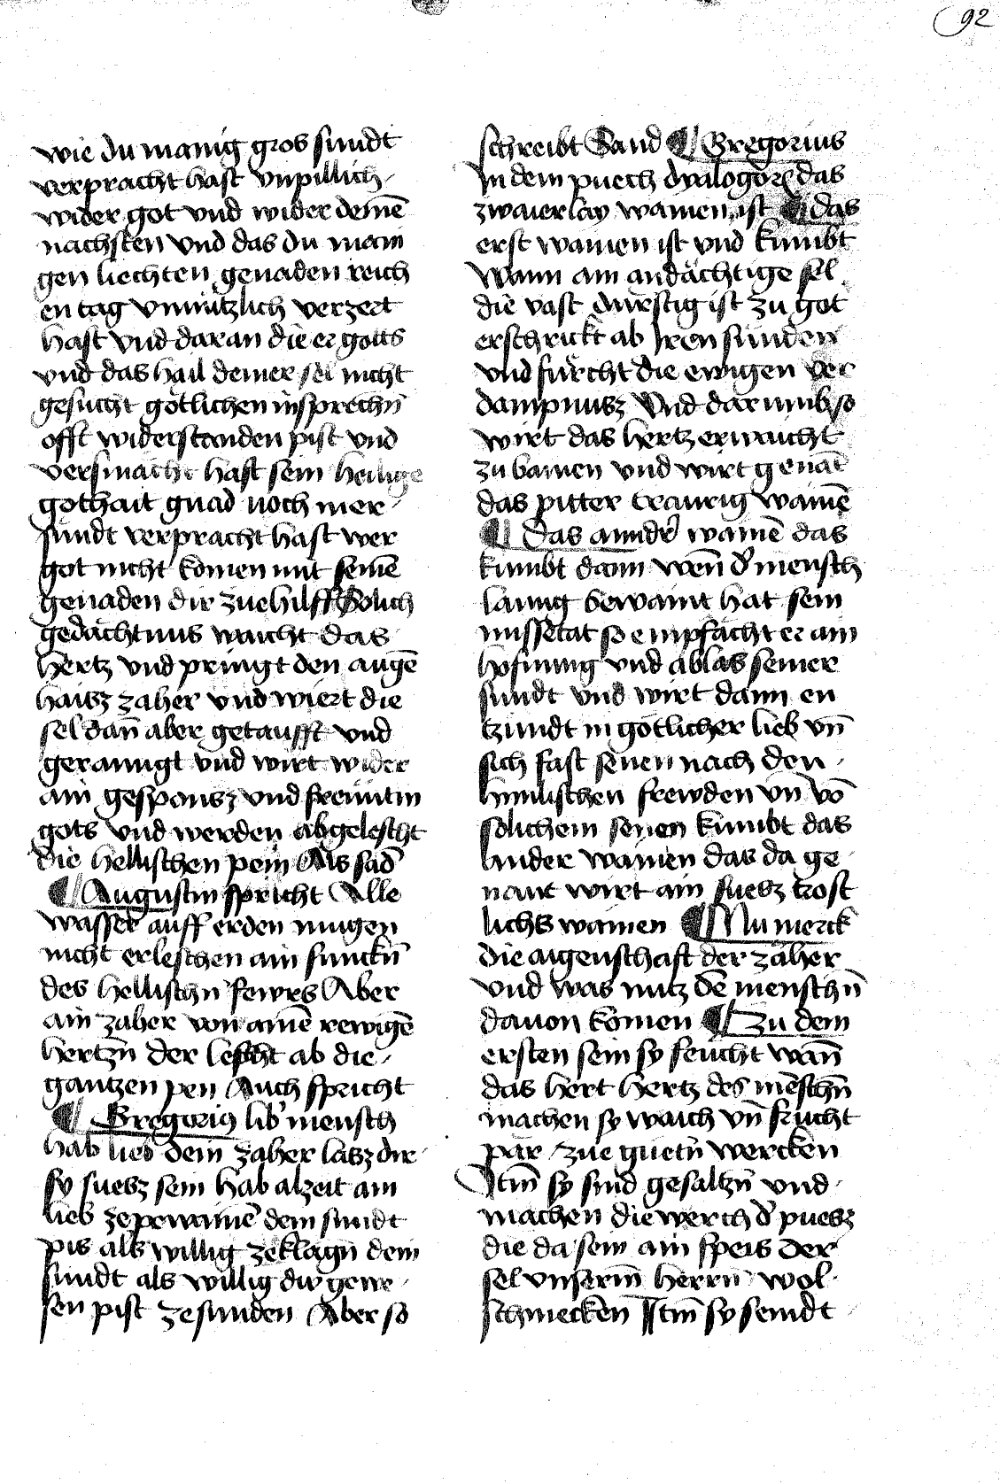 92
wie du manig gros sundt
verpracht hast vnpillich
wider got vnd wider deinē
nachsten vnd das du mani
gen liechten genaden reich
en tag vnnützlich verzert
hast vnd daran die er gotts
vnd das hail deiner sel nicht
gesucht gotlichen insprechn̄
offt widerstanden pist vnd
versmacht hast sein heilige
gothait gnad noch mer
sundt verpracht hast wer
got nicht komen mit seinē
genaden dir zue hilff Solich
gedächtnus waicht das
hertz vnd pringt den augē
haisz zaher vnd wiert die
sel dan̄ aber getaufft vnd
gerainigt vnd wirt wider
ain gesponsz vnd freuntin
gots vnd werden abgelescht
die hellischen pein Als sād
¶ Augustin spricht Alle
wasser auff erden mugen
nicht erleschen ain funckn̄
des hellischn̄ fewrs Aber
ain zaher von ainē rewigē
hertzn̄ der lescht ab die
gantzen pen Auch spricht
¶ Gregorius lib' mensch
hab lieb dein zaher lasz dir
sy suesz sein hab alzeit ain
lieb zepewainē dein sundt
pis als willig zeklagn̄ dein
sundt als willig du gewe
sen pist zesunden Aber so
schreibt Sand ¶ Gregorius
In dem puech dyalogorꝝ das
zwaierlay wainen ist ¶ das
erst wainen ist vnd kumbt
Wann ain andächtige sel
die vast durstig ist zu got
erschrickt ab Iren sunden
vnd fürcht die ewigen ver
dampnusz Vnd dar umb so
wirt das hertz erwaicht
zu wainen vnd wirt genāt
das pitter traurig wainē
¶ Das annder̄ wainē das
kumbt dann wen̄ d' mensch
lanng bewaint hat sein
missetat so empfächt er ain
hofnung vnd ablas seiner
sundt vnd wirt dann en
tzundt in gotlicher lieb vn̄
sich fast senen nach den
himlischen frewden vn̄ vō
solichem senen kumbt das
ander wainen das da ge
nant wirt ain suesz trost
lichs wainen ¶ Nu merck
die aigenschaft der zäher
vnd was nutz dē menschn̄
dauon komen ¶ zu dem
ersten sein sy feücht wan̄
das hert hertz des mēschn̄
machen sy waich vn̄ frucht
pär zue guetn̄ wercken
Itm̄ sy sind gesaltzn̄ vnd
machen die werch d' puesz
die da sein ain speis der
sel vnserm̄ herrn wol
schmecken Itm̄ sy seindt